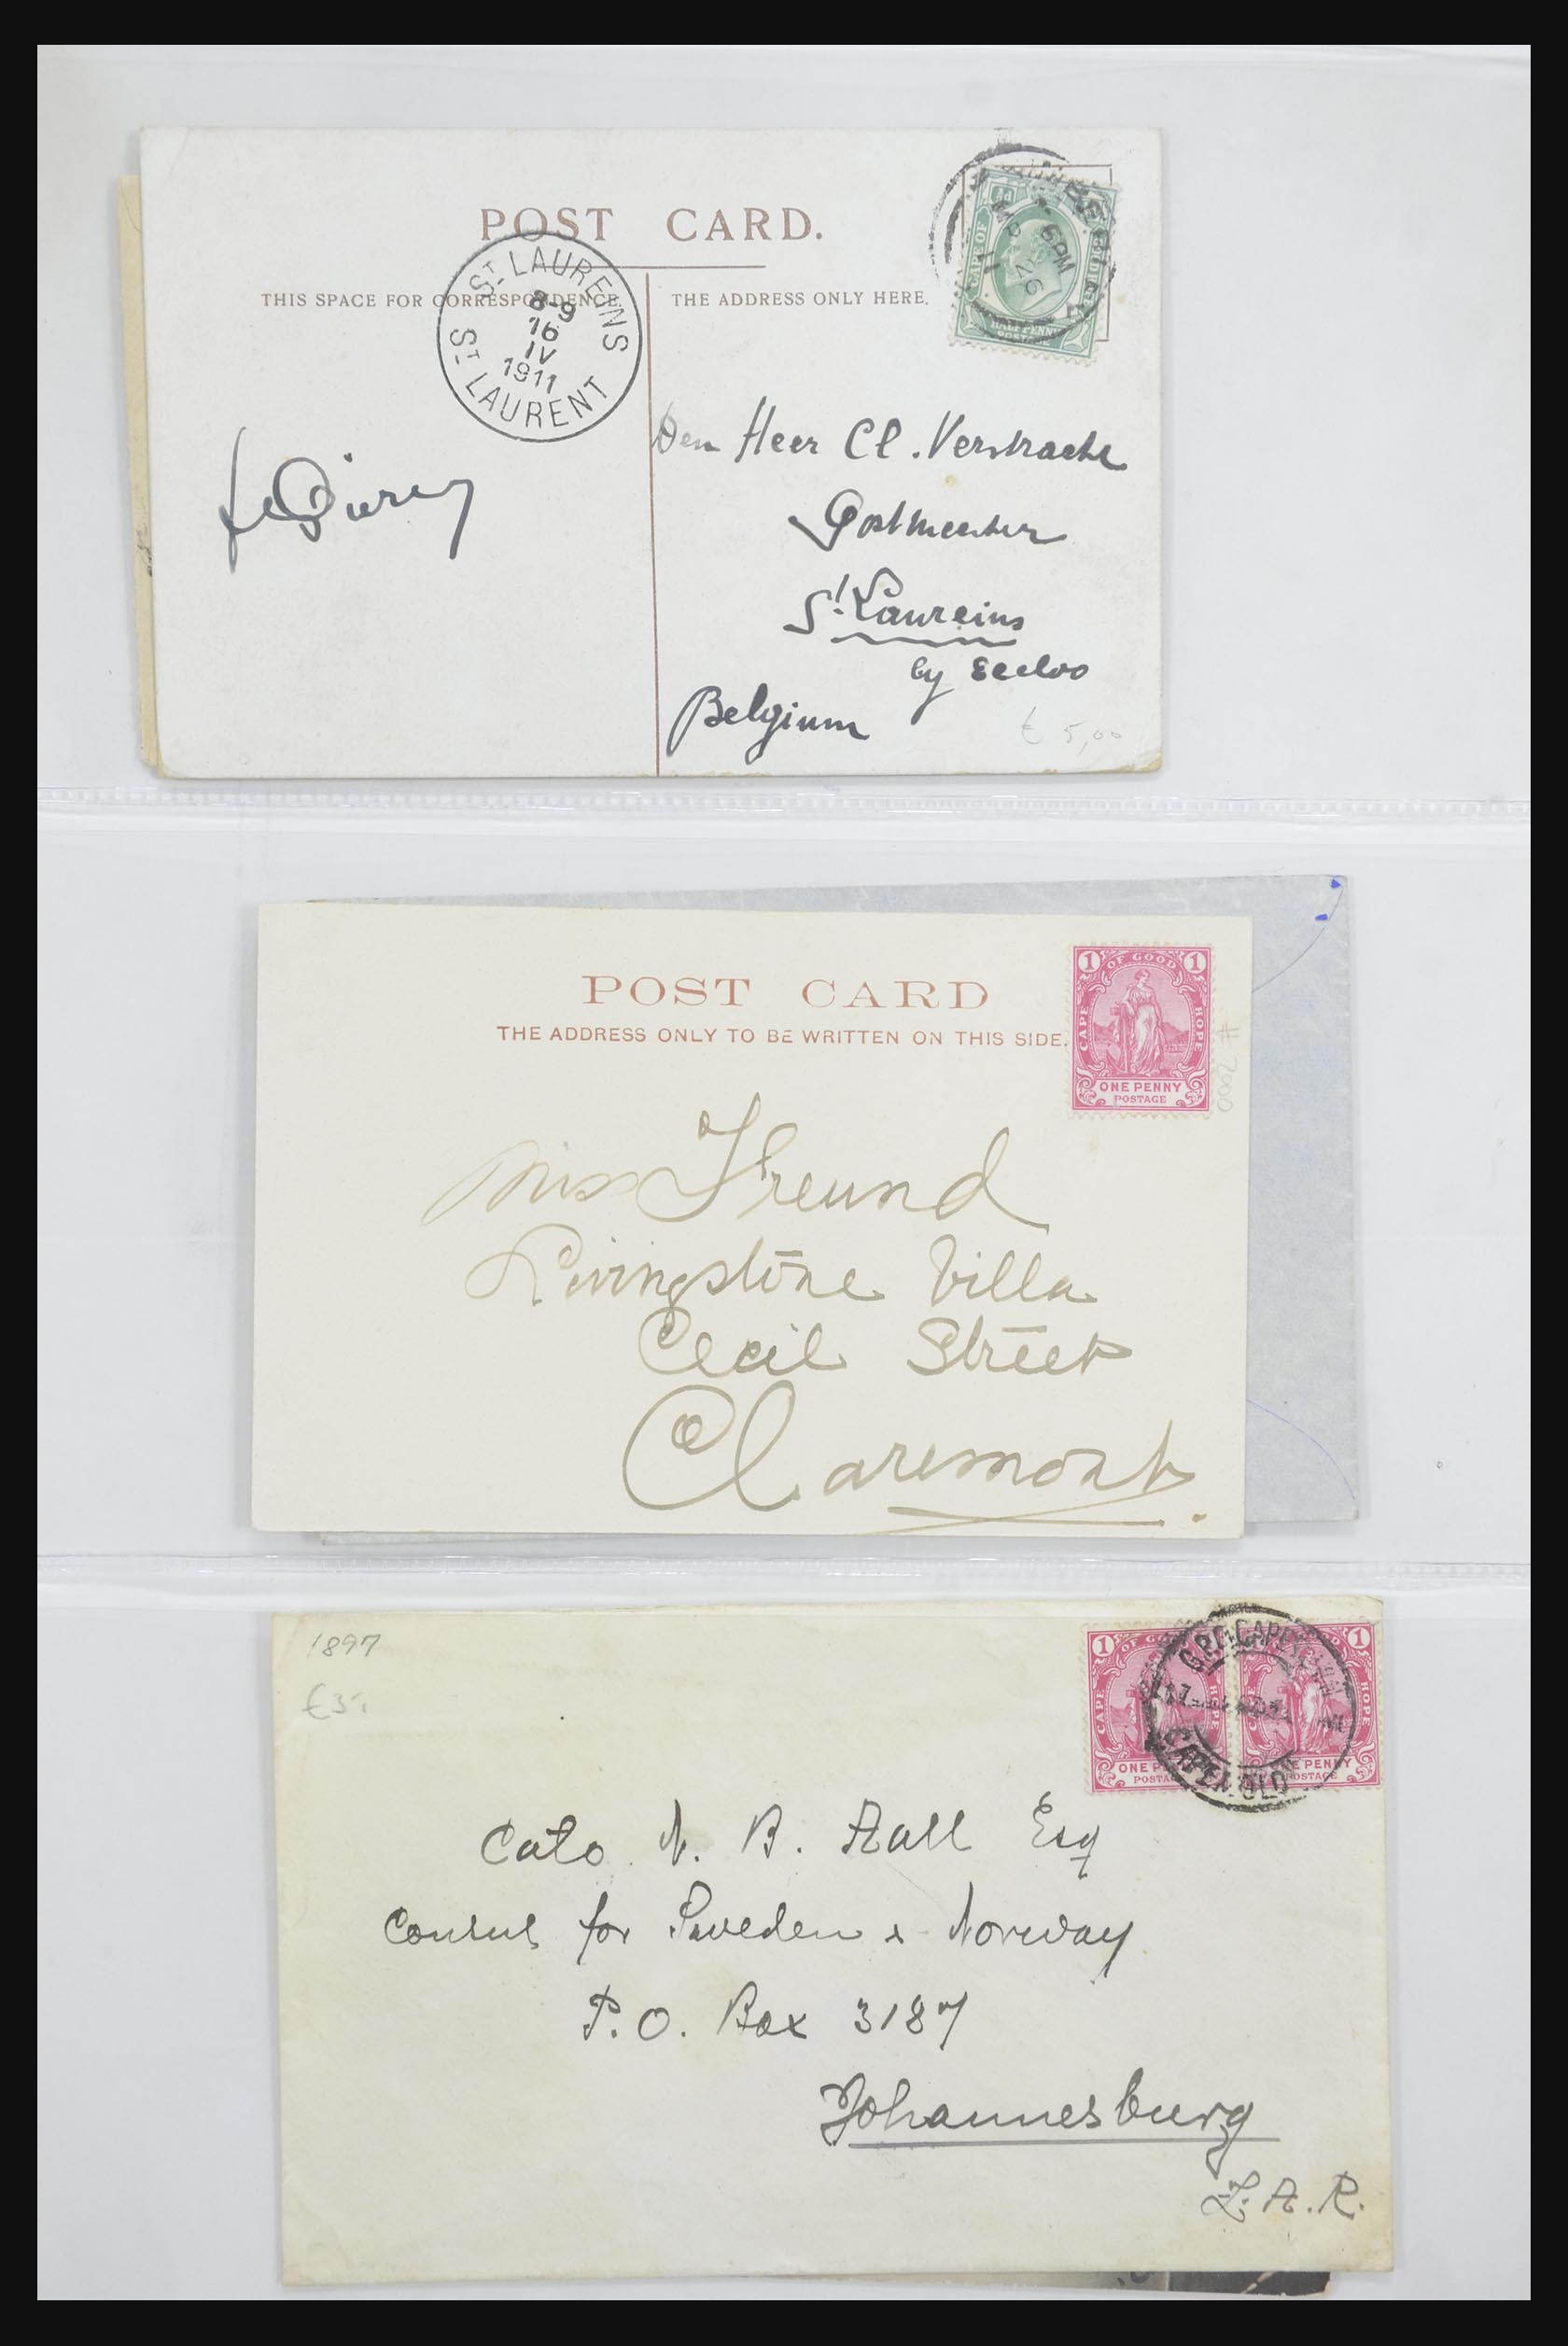 POST CARD.
THIS SPACE FOR CORRESPONDENCE
THE ADDRESS ONLY HERE.
ST LAUREINS
8-9
16
IV
1911
ST LAURENT
½d
CAPE OF
HALF PENNY
6 PM
26
11
Den Heer Cl. Verstraete
Postmeester
St Laureins
by Eecloo
Belgium
€ 5,00
POST CARD
THE ADDRESS ONLY TO BE WRITTEN ON THIS SIDE.
1 OF GOOD 1
CAPE HOPE
ONE PENNY
POSTAGE
# 200
Miss Freund
Livingstone Villa
Cecil Street
Claremont.
1897
€3
1 OF GOOD
CAPE HOPE
1
HOPE
G.P.O. CAPE TOWN
CAPE COLONY
Cato N. B. Aall Esq
Consul for Sweden & Norway
P.O. Box 3187
Johannesburg
Z.A.R.